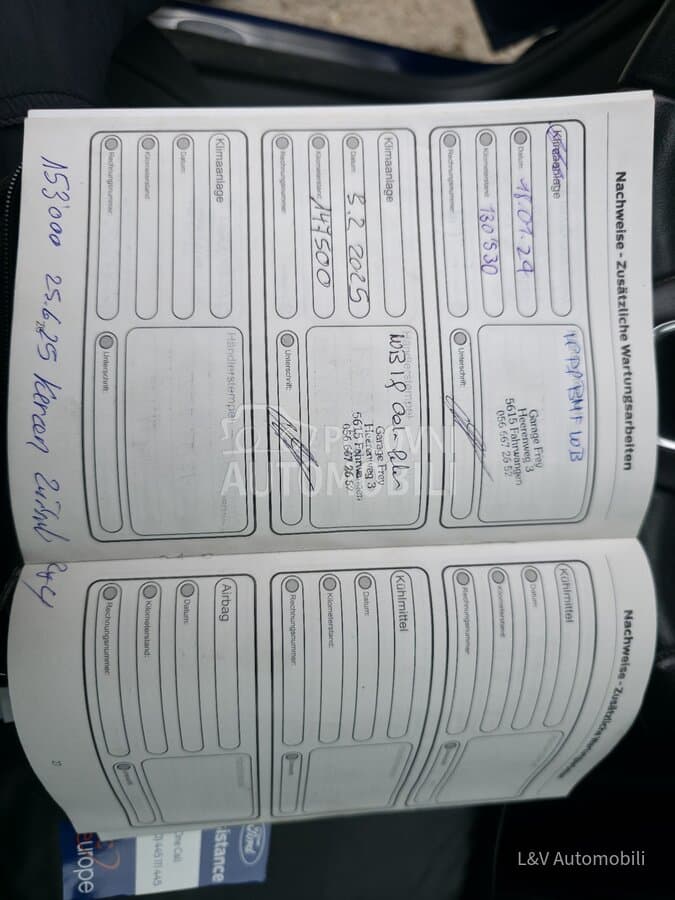 Nachweise - Zusätzliche Wartungsarbeiten
Klimaanlage
Datum:
18.01.24
Kilometerstand:
130'930
Rechnungsnummer:
BMF WB
Garage Frey
Heerenweg 3
5615 Fahrwangen
056 667 26 52
Unterschrift:
Klimaanlage
Datum:
3.2 2025
Kilometerstand:
147500
Rechnungsnummer:
Händlerstempel
WB
Garage Frey
Heerenweg 3
5615 Fahrwangen
056 667 26 52
Unterschrift:
Klimaanlage
Datum:
Kilometerstand:
Rechnungsnummer:
Händlerstempel
Unterschrift:
153'000 25.6.25
Nachweise - Zusätzliche Wartungsarbeiten
Kühlmittel
Datum:
Kilometerstand:
Rechnungsnummer:
Kühlmittel
Datum:
Kilometerstand:
Rechnungsnummer:
Airbag
Datum:
Kilometerstand:
Rechnungsnummer:
Ford
istance
One Call
445 111 445
europe
POLOVNI
AUTOMOBILI
L&V Automobili